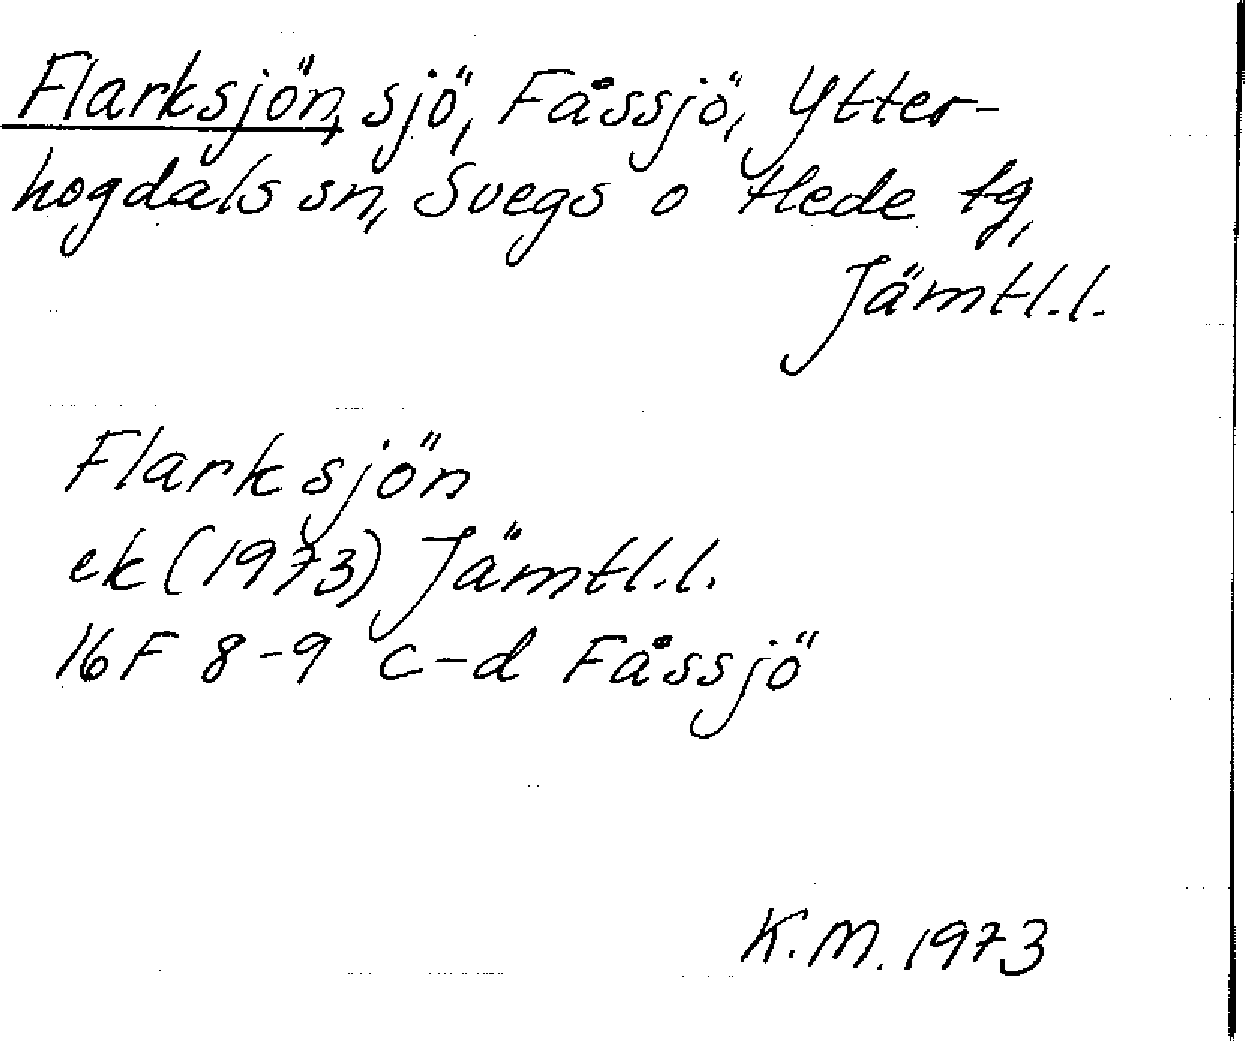 Flarksjön, sjö, Fåssjö, Ytter-
hogdals sn, Svegs o Hede tg,
Jämtl.l.
Flarksjön
ek (1973) Jämtl.l.
16F 8-9 c-d Fåssjö
K.M. 1973